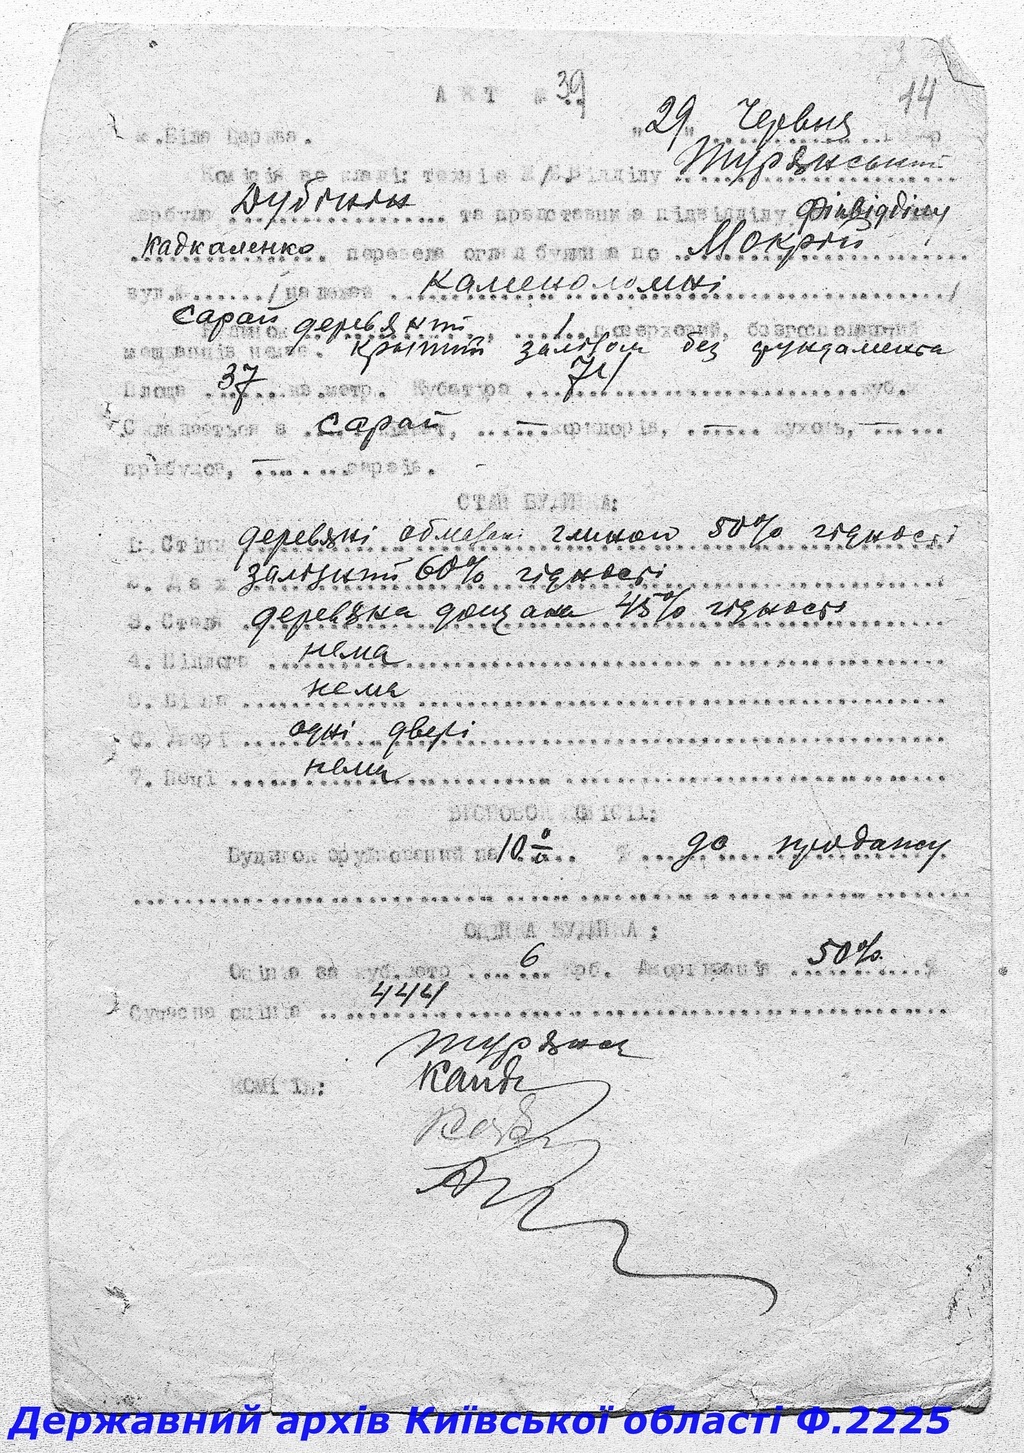 14
АКТ № 39
м. Біла Церква. "29" Червня
Комісія в складі: техніка Ж/К Відділу Турянський
Дубінін та представника підвідділу Фінвідділу
Кадкаленко перевела огляд будинка по Мокрій
вул. № ....../ Каменоломні /
сарай деревяний, 1 поверховий,
мешканців немає. Критий залізом без фундамента
Площа 37 кв. метр. Кубатура 74 куб.м.
Складається з сарай, — коридорів, — кухонь, —
прибудов, — сараїв.
СТАН БУДИНКА:
1. Стіни деревяні обмазані глиной 50% гідності
2. Дах залізний 60% гідності
3. Стеля деревяна дощана 45% гідності
4. Підлога нема
5. Вікна нема
6. Двері одні двері
7. Печі нема
ВИСНОВОК КОМІСІЇ:
Будинок зруйнований на 10% % до продажу
ОЦІНКА БУДИНКА:
Оцінка за куб. метр 6 крб. Амортизація 50% %
Сучасна оцінка 444
КОМІСІЯ:
Державний архів Київської області Ф.2225